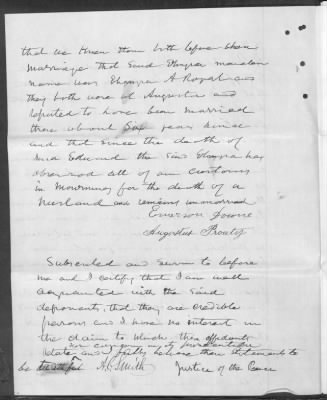 that we knew them both before their
marriage that said Elmyra maiden
name was Elmyra A Royal as
they both were of Augusta and
reputed to have been married
there about six years since
and that since the death of
said Edward the said Elmyra has
observed all of our customs
in mourning for the death of a
husband and remains unmarried
Emerson
Augustus
Subscribed and sworn to before
me and I certify that I am well
acquainted with the said
deponents, that they are credible
persons and I have no interest in
the claim to which these affidavits
relate nor concern in its prosecution
and fully believe their statements to
be truthful A. Smith Justice of the Peace